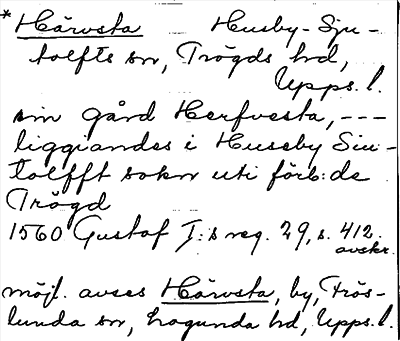 * Härvsta Husby-Sju-
tolfts sn, Trögds hd,
Upps.l.
sin gård Herfvesta, ---
liggiandes i Huseby Siu-
tolfft sokn uti förb:de
Trögd
1560 Gustaf I:s reg. 29, s. 412.
avskr.
möjl. avses Härvsta, by, Frös-
lunda sn, Lagunda hd, Upps.l.